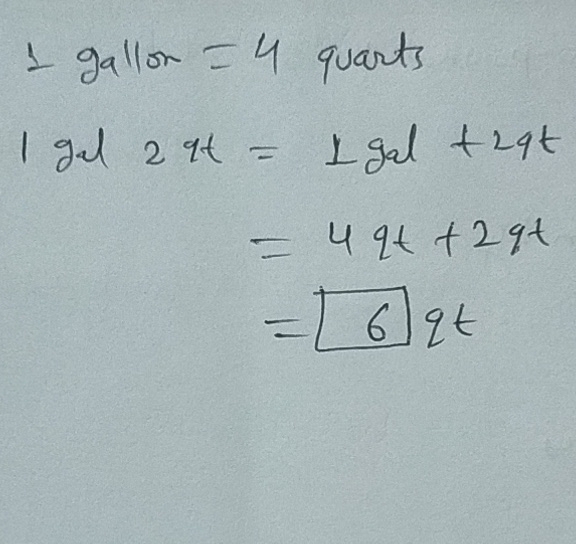 1 gallon = 4 quarts
1 gal 2 qt = 1 gal + 2qt
= 4 qt + 2 qt
= 6 qt